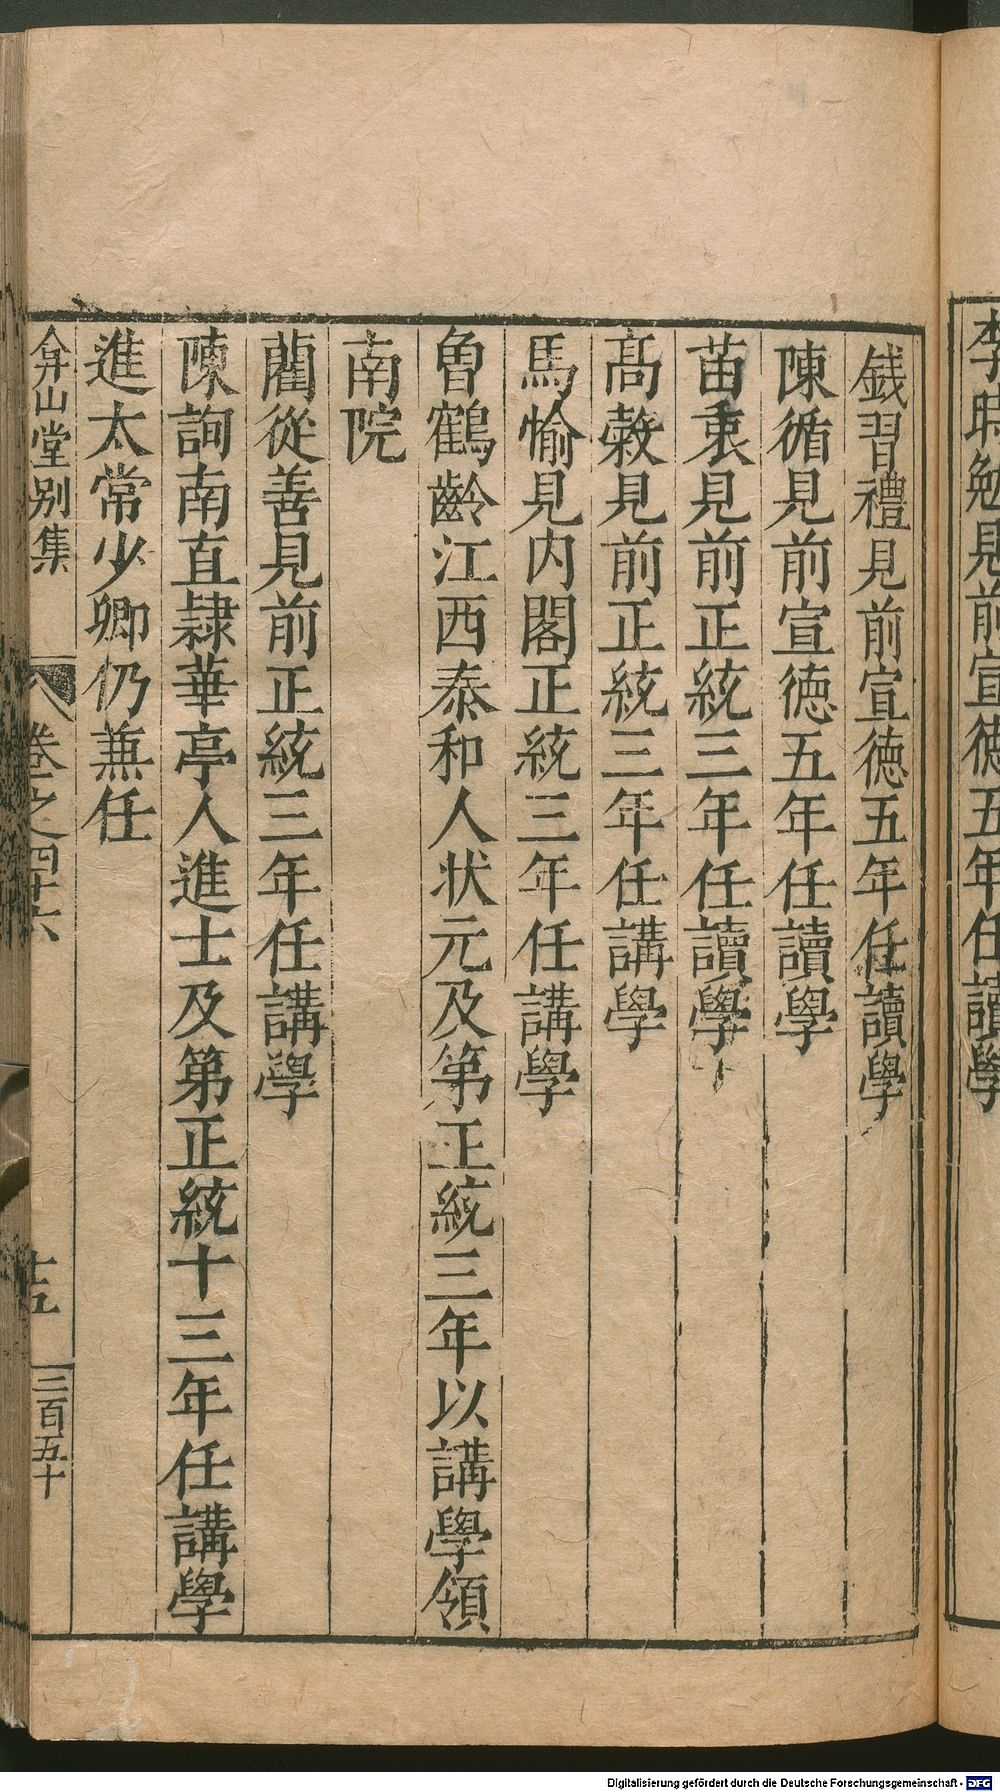 李時勉見前宣徳五年任讀學
錢習禮見前宣徳五年任讀學
陳循見前宣徳五年任讀學
苗衷見前正統三年任讀學
髙榖見前正統三年任講學
馬愉見内閣正統三年任講學
魯鶴齡江西泰和人状元及第正統三年以講學領
南院
藺從善見前正統三年任講學
陳詢南直隸華亭人進士及第正統十三年任講學
進太常少卿仍兼任
弇山堂别集
卷之四十六
十五
三百五十
Digitalisierung gefördert durch die Deutsche Forschungsgemeinschaft - DFG